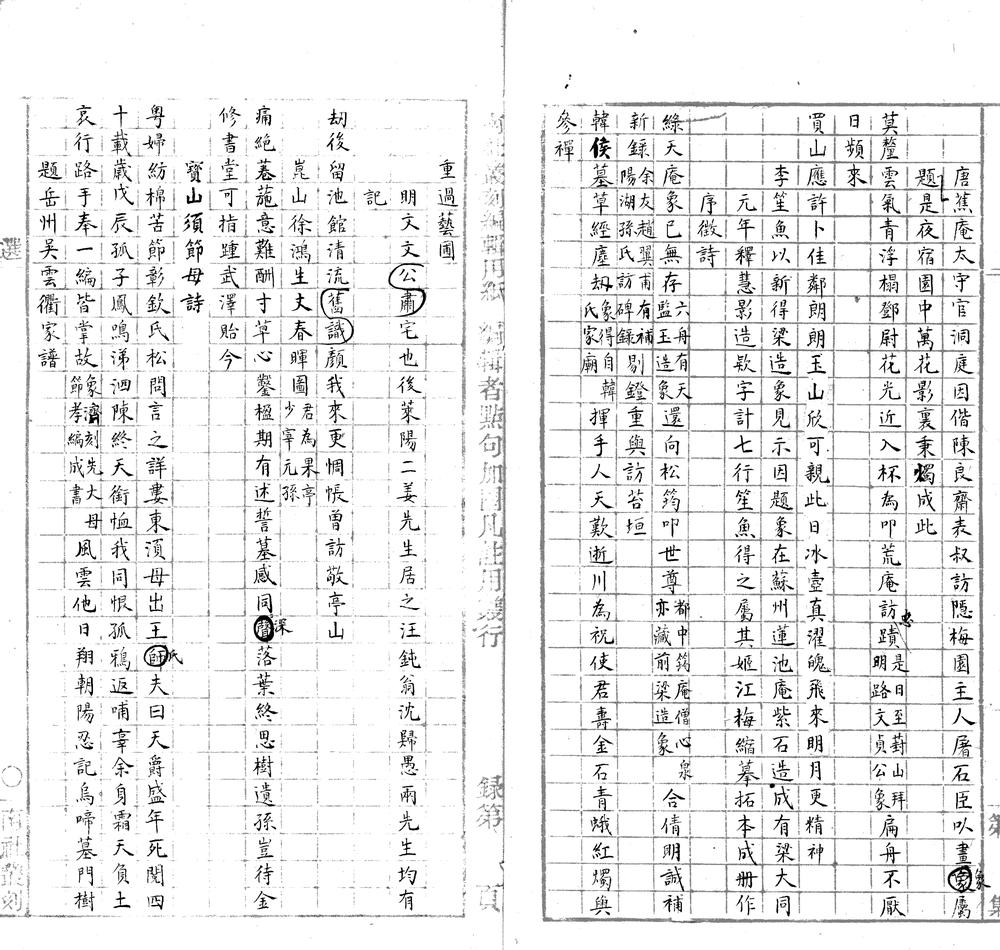 唐蕉庵太守官洞庭因偕陳良齋表叔訪隱梅園主人屠石臣以畫象屬
題是夜宿園中萬花影裏秉燭成此
莫釐雲氣青浮榻鄧尉花光近入杯為叩荒庵訪忠蹟是日至葑山拜明路文貞公象扁舟不厭
日頻來
買山應許卜佳鄰朗朗玉山欣可親此日冰壺真濯魄飛來明月更精神
李笙魚以新得梁造象見示因題象在蘇州蓮池庵紫石造成有梁大同
元年釋慧影造欵字計七行笙魚得之屬其姬江梅縮摹拓本成册作
序徵詩
綠天庵象已無存六舟有天監玉造象還向松筠叩世尊都中筠庵僧心泉亦藏前梁造象合倩明誠補
新錄余友趙翼甫有補陽湖孫氏訪碑錄剔鐙重與訪苔垣
韓侯墓草經塵刼象得自韓氏家廟揮手人天歎逝川為祝使君壽金石青蛾紅燭與
參禪
重過藝圃
明文文公肅宅也後萊陽二姜先生居之汪鈍翁沈歸愚兩先生均有
記
刼後留池館清流舊識顏我來更惆悵曾訪敬亭山
崑山徐鴻生丈春暉圖君為果亭少宰元孫
痛絕菤葹意難酬寸草心鏨楹期有述誓墓感同深落葉終思樹遺孫豈待金
修書堂可指踵武澤貽今
寶山須節母詩
粤婦紡棉苦節彰欽氏松問言之詳婁東湏母出王氏夫曰天爵盛年死閱四
十載歲戊辰孤子鳳鳴涕泗陳終天銜恤我同恨孤鴉返哺辜余身霜天負土
哀行路手奉一編皆掌故象濟刻先大母節孝編成書風雲他日翔朝陽忍記烏啼墓門樹
題岳州吳雲衢家譜
選
錄第 頁
〇
南社叢刻
第
集